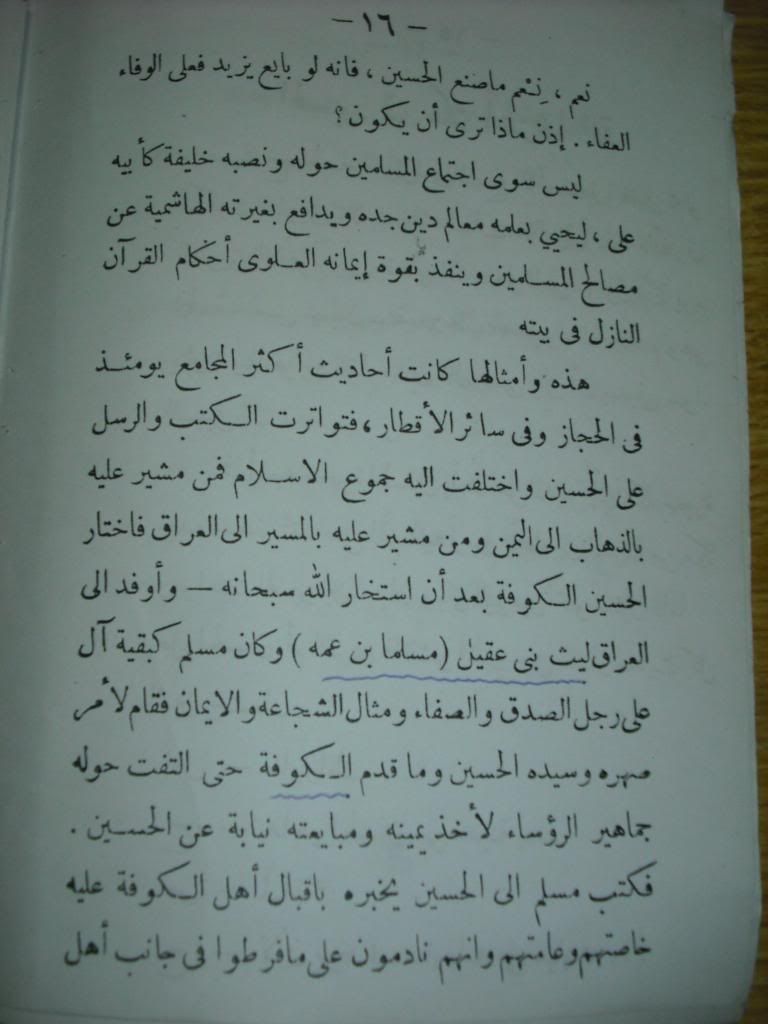 — ١٦ —
نعم ، نِعْم ماصنع الحسين ، فانه لو بايع يزيد فعلى الوفاء
العفاء . إذن ماذا ترى أن يكون ؟
ليس سوى اجتماع المسلمين حوله ونصبه خليفة كأبيه
على ، ليحيي بعلمه معالم دين جده ويدافع بغيرته الهاشمية عن
مصالح المسلمين وينفذ بقوة إيمانه العلوى أحكام القرآن
النازل فى بيته
هذه وأمثالها كانت أحاديث أكثر المجامع يومئذ
فى الحجاز وفى سائر الأقطار ، فتواترت الكتب والرسل
على الحسين واختلفت اليه جموع الاسلام فمن مشير عليه
بالذهاب الى اليمن ومن مشير عليه بالمسير الى العراق فاختار
الحسين الكوفة بعد أن استخار الله سبحانه — وأوفد الى
العراق ليث بنى عقيل ( مسلما بن عمه ) وكان مسلم كبقية آل
على رجل الصدق والصفاء ومثال الشجاعة والايمان فقام لأمر
صهره وسيده الحسين وما قدم الكوفة حتى التفت حوله
جماهير الرؤساء لأخذ يمينه ومبايعته نيابة عن الحسين .
فكتب مسلم الى الحسين يخبره باقبال أهل الكوفة عليه
خاصتهم وعامتهم وانهم نادمون على مافرطوا فى جانب أهل